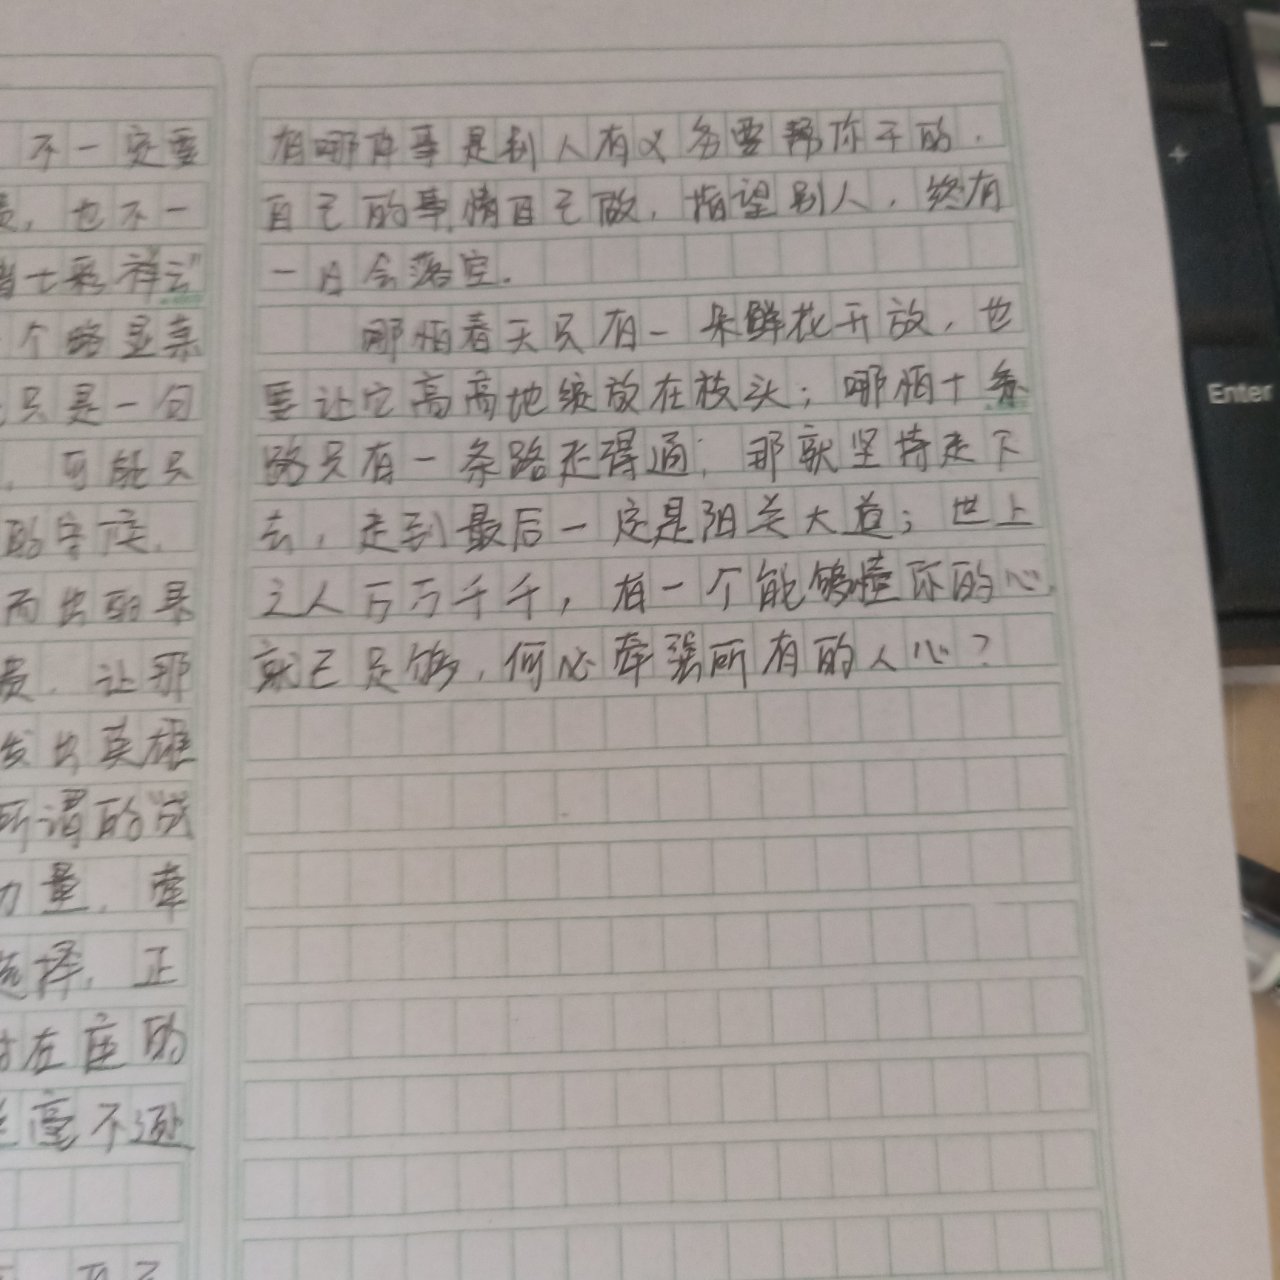 不一定要
，也不一
七彩祥云”
个略显
只是一句
，可能只
的守候，
而出的
，让那
发出英雄
所谓的“
力量，牵
选择，正
在座的
毫不逊
有哪件事是别人有义务要帮你干的，
自己的事情自己做，指望别人，终有
一日会落空．
哪怕春天只有一朵鲜花开放，也
要让它高高地绽放在枝头；哪怕十条
路只有一条路走得通；那就坚持走下
去，走到最后一定是阳关大道；世上
之人万万千千，有一个能够懂你的心，
就已足够，何必牵强所有的人心？
Enter